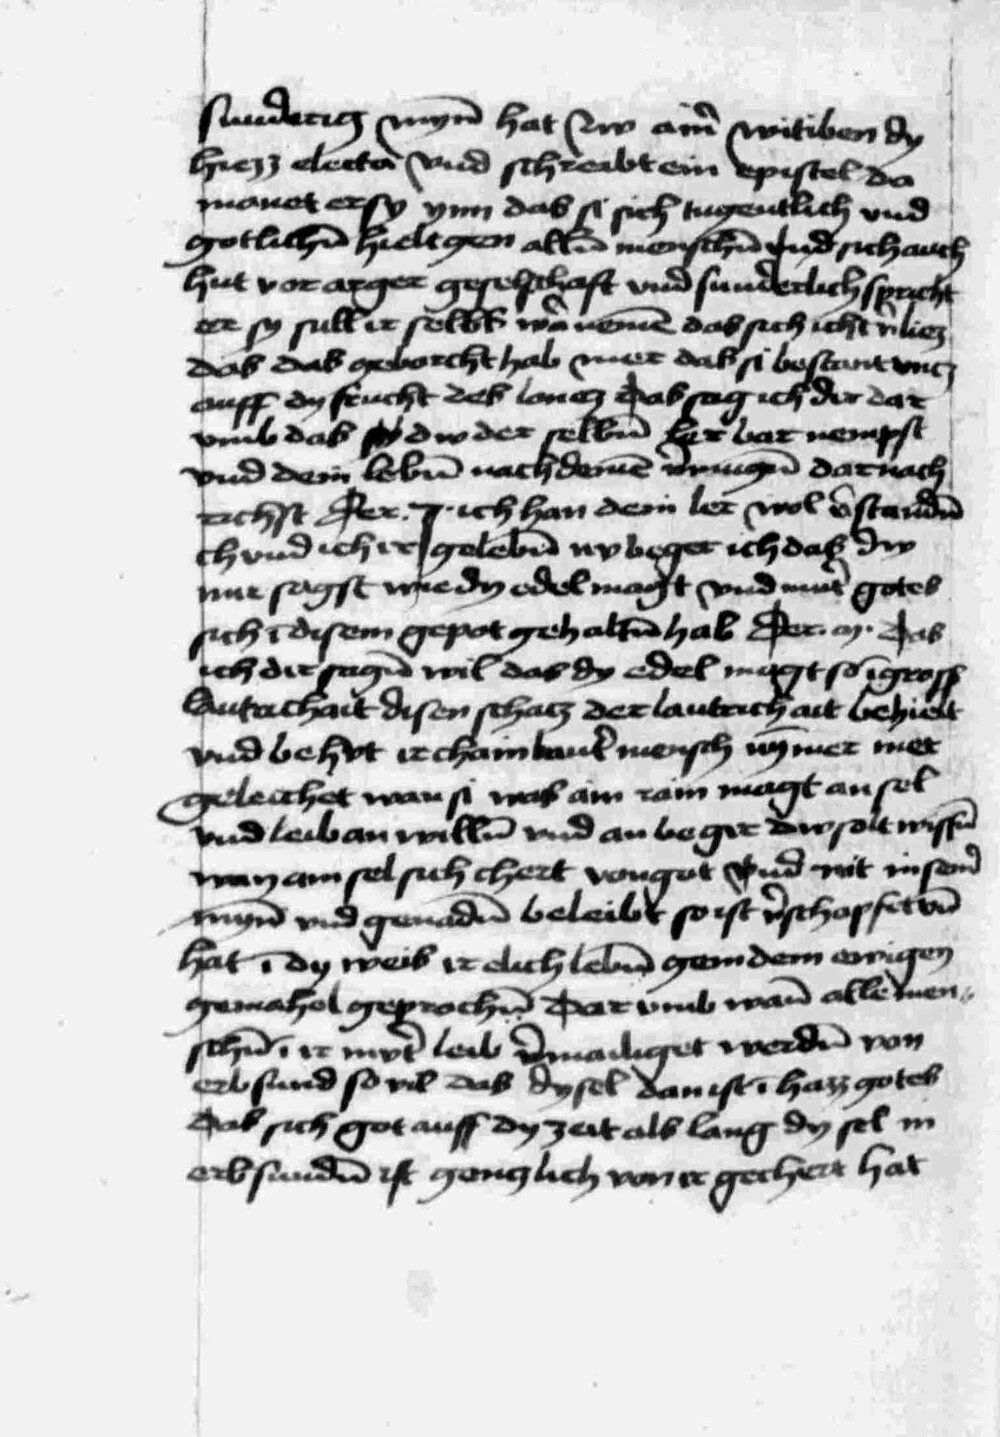 sunderig mynn hat zw aim̄ witiben dy
hiezz electa vnd schreibt ein epistel da
manet er sy ynn das si sich tugentlich vnd
gotlichn̄ hielt gen alln̄ menschn̄ vnd sich auch
hut vor arger geselschaft vnd sunderlich spricht
er sy sull ir selbs war nemē das sich icht v̄liez
das das geborcht hab mer das si bestant vntz
auff dy frucht des lonez das sag ich dir dar
vmb das dw der selbn̄ ler bar nempst
vnd dein lebn̄ nach deinē v̄mugn̄ dar nach
richst Der. J. ich han dein ler wol v̄standn̄
ch vnd ich ir gelebn̄ nv beger ich das dw
mir sagst wie dy edel magt vnd mut̄ gotes
sich ī disem gepot gehaltn̄ hab Der. m. Das
ich dir sagn̄ wil das dy edel magt so ī gross
lautrichait disen schatz der lautrichait behielt
vnd behvt ir chain laut̄ mensch nȳmer mer
geleichet wan si was ain rain magt an sel
vnd leib an willn̄ vnd an begir dw solt wissn̄
wan ain sel sich chert von got vnd nit in sein̄
mynn̄ vnd genadn̄ beleibt so ist v̄schaffet vn̄
hat ī dy weis ir elich lebn̄ gem dem ewigen
gemahel geprochn̄ Dar vmb wan̄ alle men
schn̄ ī ir mvt̄ leib v̄mailiget werdn̄ von
erbsund so vil das dy sel dan ist ī hazz gotes
Das sich got auff dy zeit als lang dy sel in
erbsundn̄ ist gentzlich von ir gechert hat